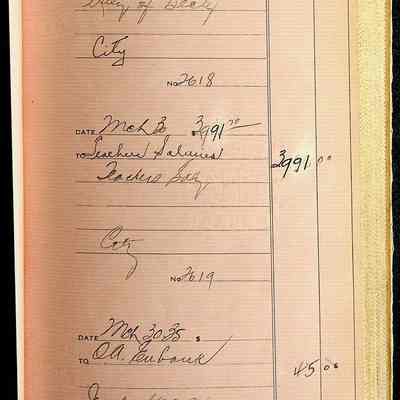 City
No 2618
DATE Mch 30 $3991.70
TO Teachers Salaries
Teachers Salry
3991.00
City
No 2619
DATE Mch 30 35 $
TO O.A. Eubank
45.00